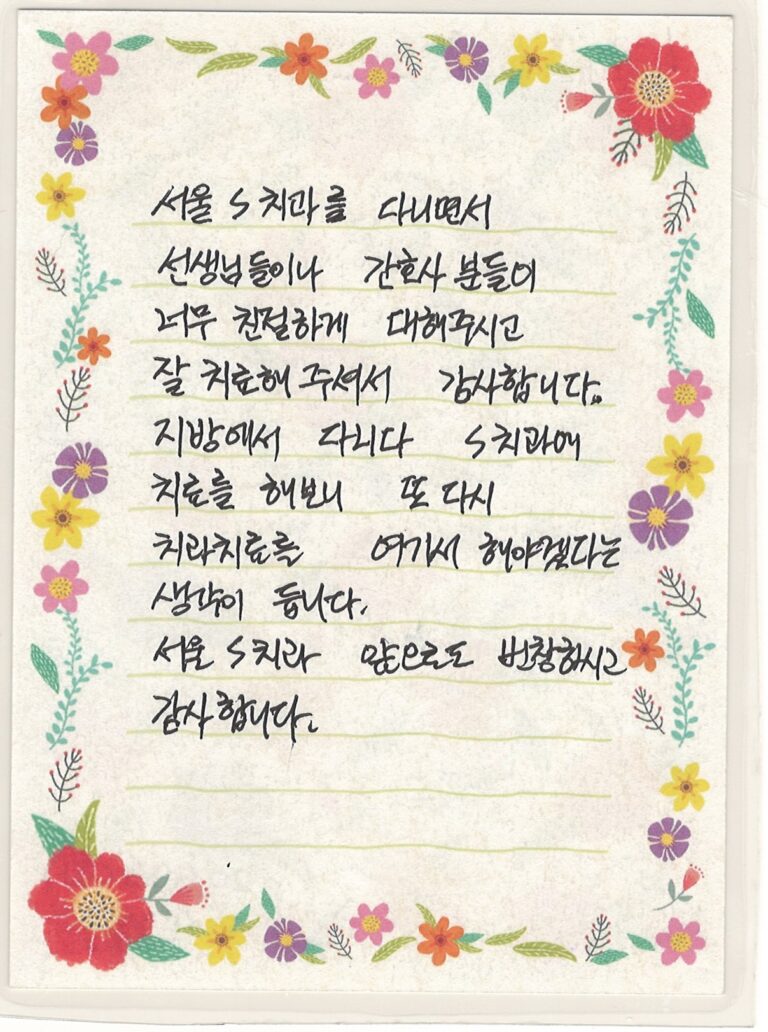 서울 S 치과를 다니면서
선생님들이나 간호사 분들이
너무 친절하게 대해주시고
잘 치료해 주셔서 감사합니다.
지방에서 다니다 S치과에
치료를 해보니 또 다시
치과치료를 여기서 해야겠다는
생각이 듭니다.
서울 S치과 앞으로도 번창하시고
감사합니다.